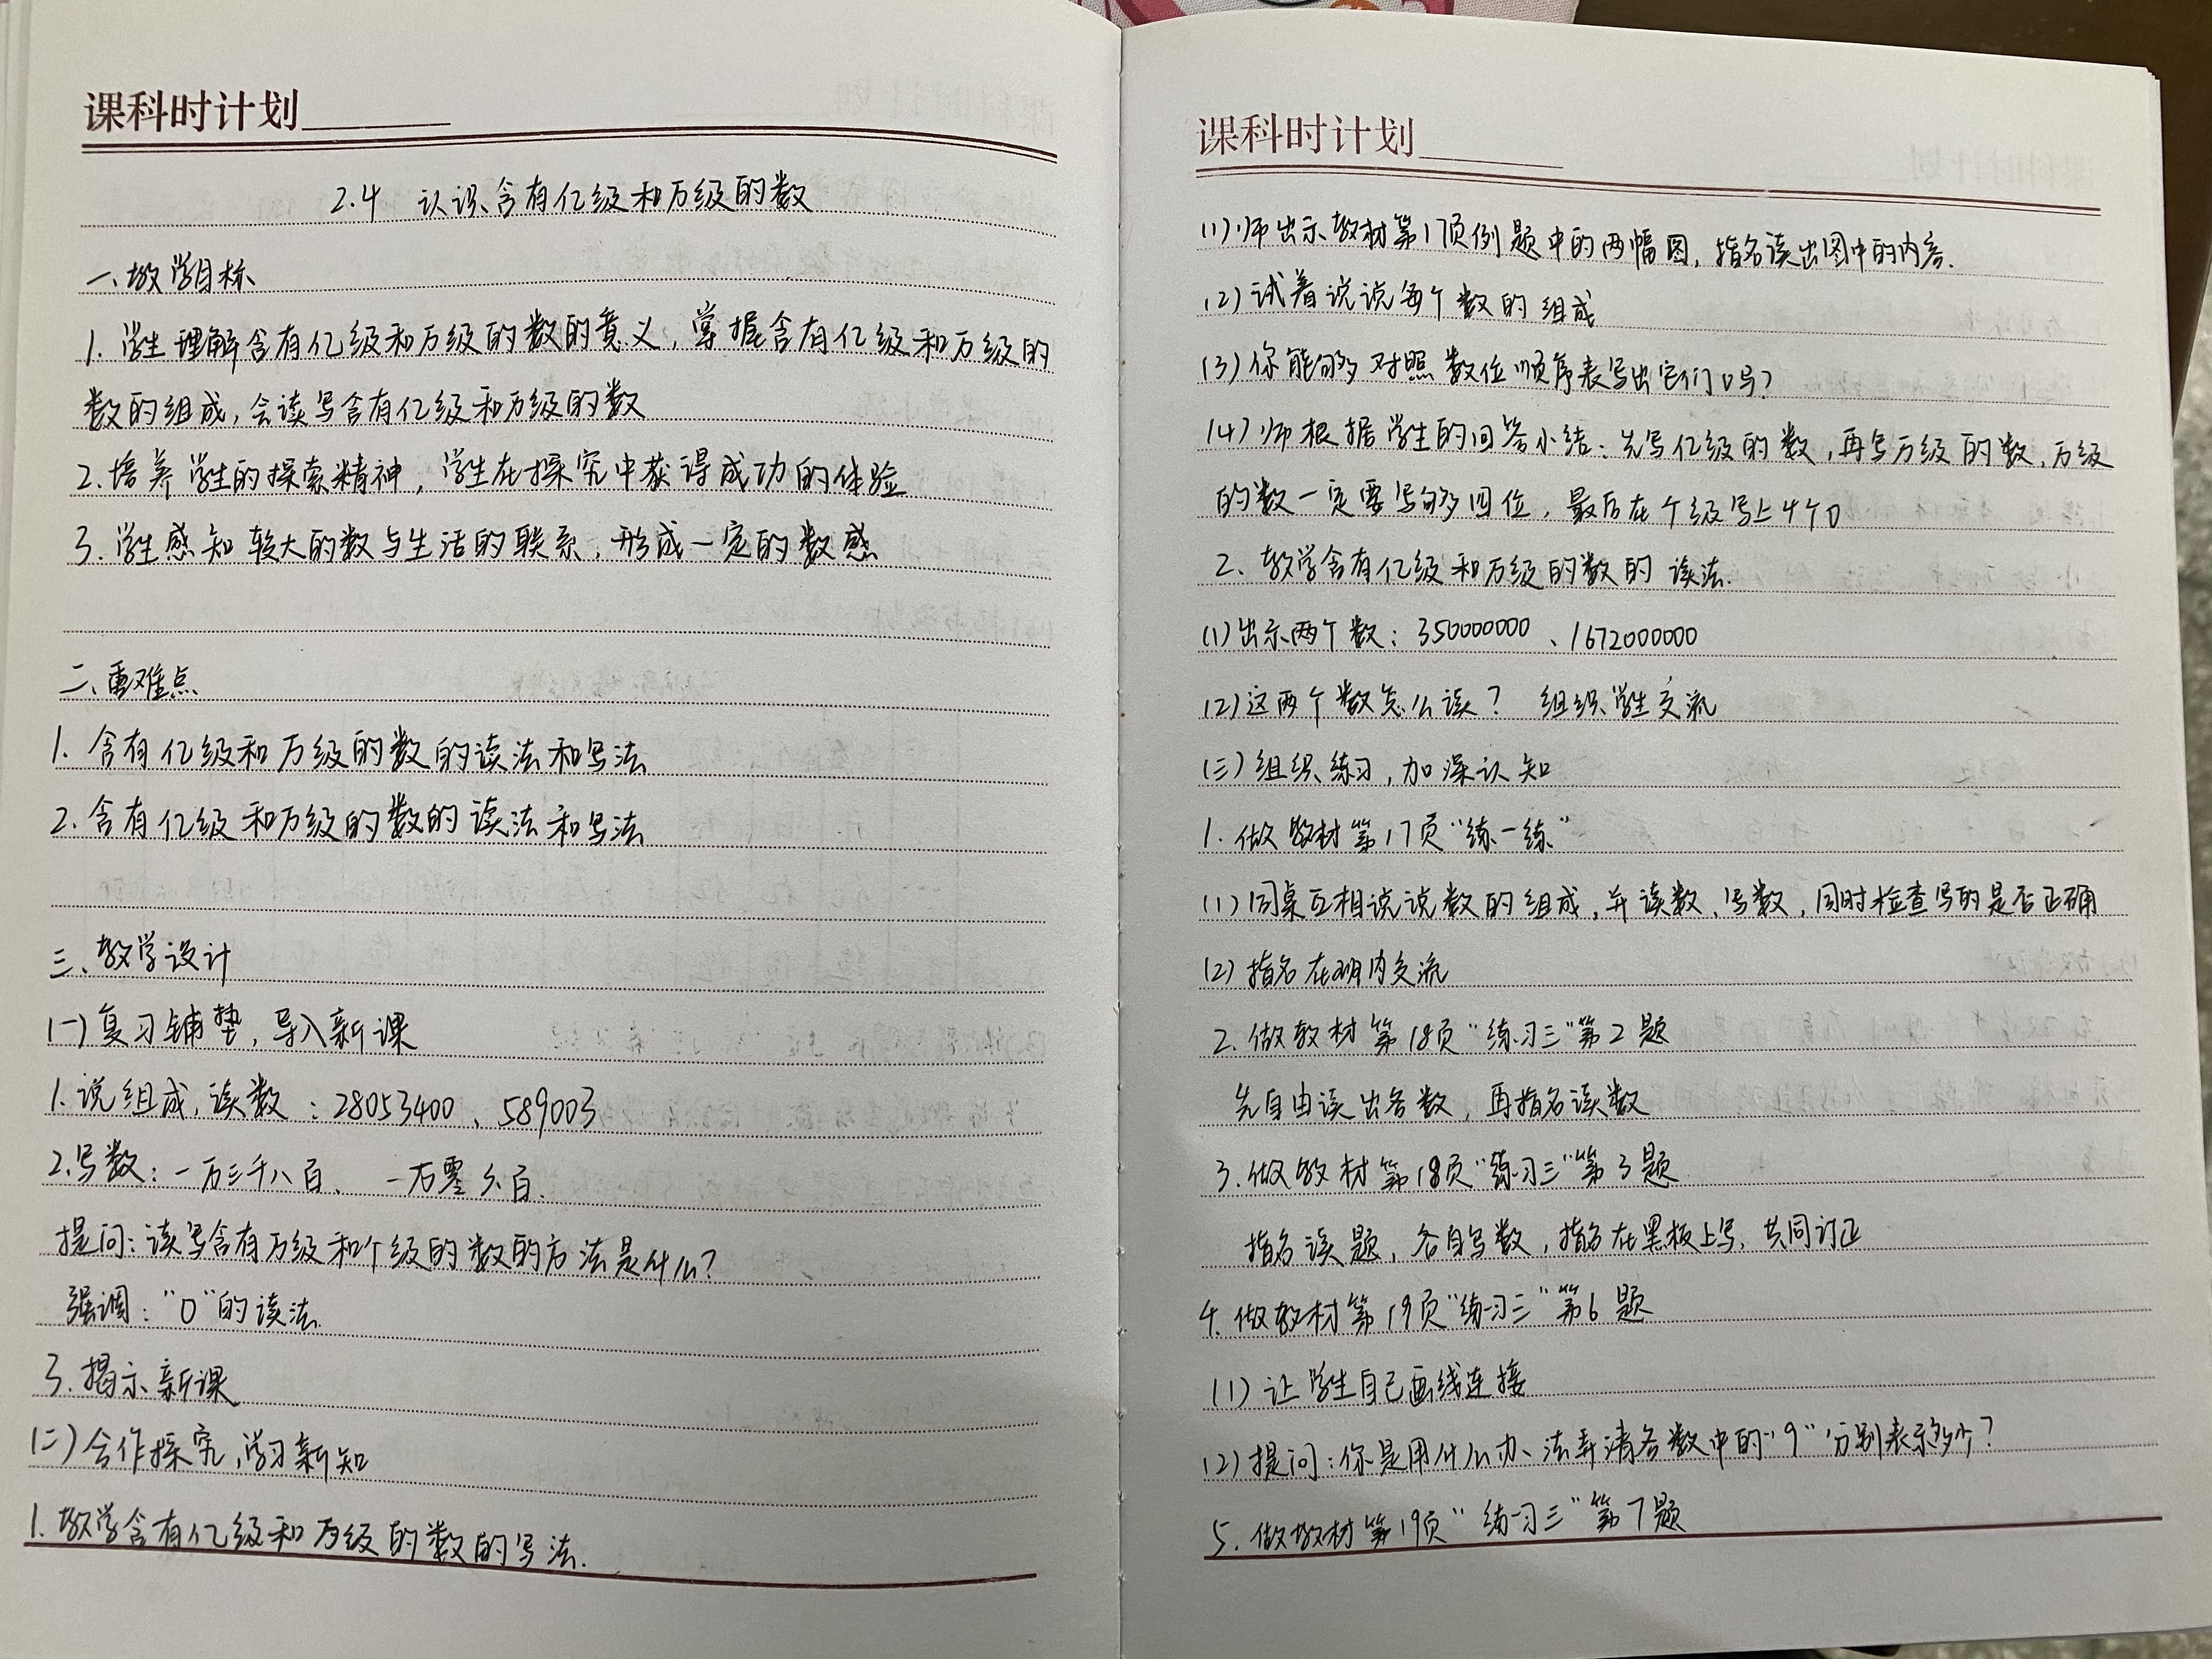 课科时计划
2.4 认识含有亿级和万级的数
一、教学目标
1. 学生理解含有亿级和万级的数的意义,掌握含有亿级和万级的
数的组成,会读写含有亿级和万级的数
2. 培养学生的探索精神,学生在探究中获得成功的体验
3. 学生感知较大的数与生活的联系,形成一定的数感
二、重难点
1. 含有亿级和万级的数的读法和写法
2. 含有亿级和万级的数的读法和写法
三、教学设计
(一)复习铺垫,导入新课
1. 说组成,读数:28053400、589003
2. 写数:一万三千八百、 一万零六百.
提问:读写含有万级和个级的数的方法是什么?
强调:“0”的读法.
3. 揭示新课
(二)合作探究,学习新知
1. 教学含有亿级和万级的数的写法.
课科时计划
(1)师出示教材第17页例题中的两幅图,指名读出图中的内容.
(2)试着说说每个数的组成
(3)你能够对照数位顺序表写出它们吗?
(4)师根据学生的回答小结:先写亿级的数,再写万级的数,万级
的数一定要写够四位,最后在个级写上4个0
2、教学含有亿级和万级的数的读法.
(1)出示两个数:350000000、1672000000
(2)这两个数怎么读? 组织学生交流
(三)组织练习,加深认知
1. 做教材第17页“练一练”
(1)同桌互相说说数的组成,并读数、写数,同时检查写的是否正确
(2)指名在班内交流
2. 做教材第18页“练习三”第2题
先自由读出各数,再指名读数
3. 做教材第18页“练习三”第3题
指名读题,各自写数,指名在黑板上写,共同订正
4. 做教材第19页“练习三”第6题
(1)让学生自己画线连接
(2)提问:你是用什么办法弄清各数中的“9”分别表示多少?
5. 做教材第19页“练习三”第7题